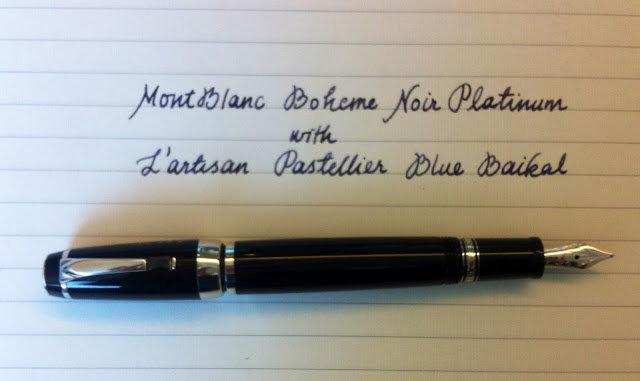 MontBlanc Boheme Noir Platinum
with
L'artisan Pastellier Blue Baikal